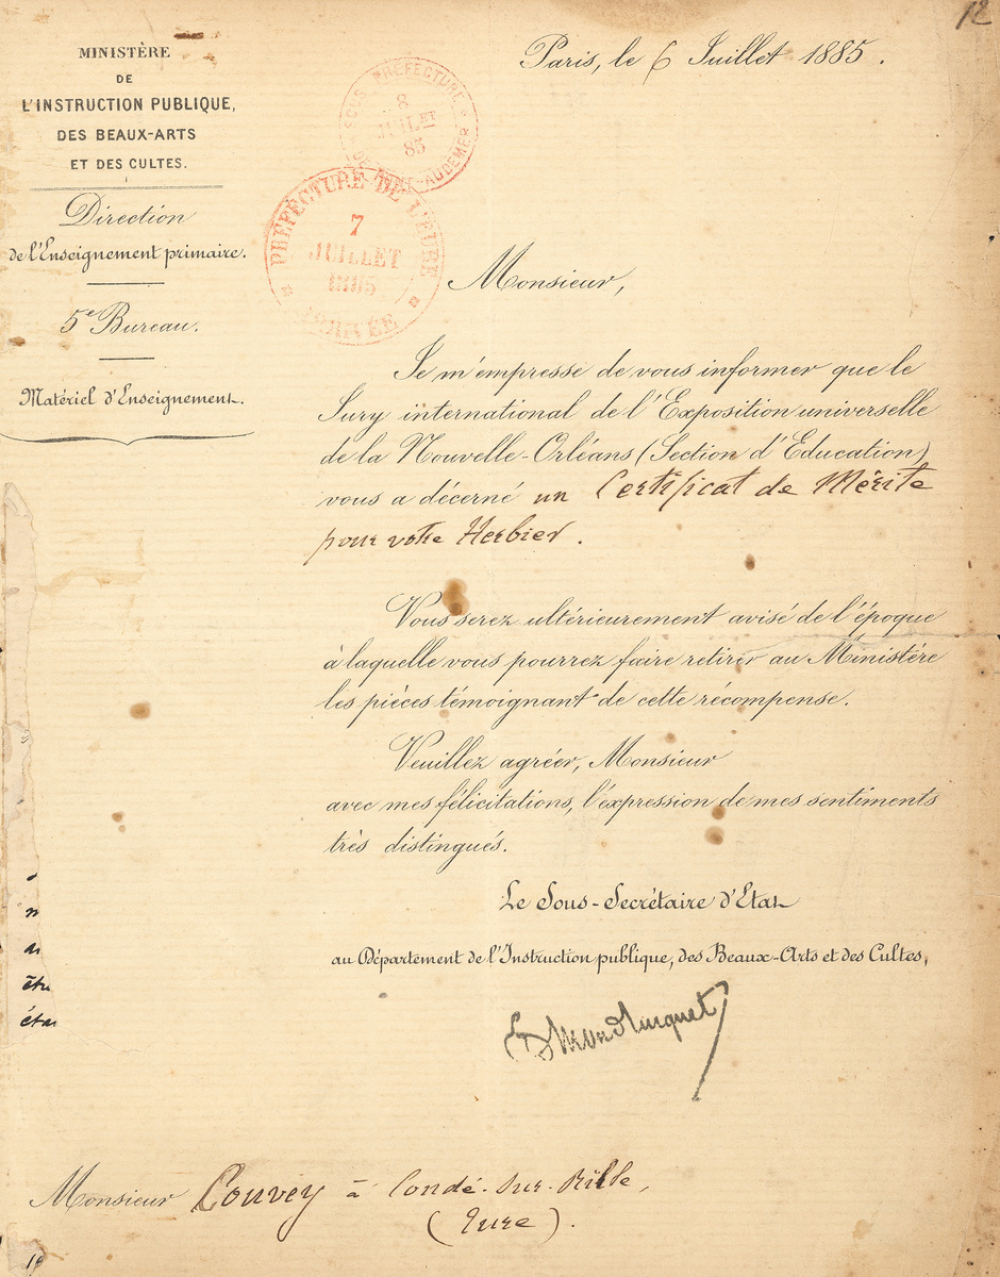 12
Paris, le 6 Juillet 1885.
MINISTÈRE
DE
L'INSTRUCTION PUBLIQUE,
DES BEAUX-ARTS
ET DES CULTES.
Direction
de l'Enseignement primaire.
5e Bureau.
Matériel d'Enseignement.
SOUS-PRÉFECTURE
8
JUILET
85
AUDEMER
PRÉFECTURE DE L'EURE
7
JUILLET
1885
ARRIVÉE
Monsieur,
Je m'empresse de vous informer que le
Jury international de l'Exposition universelle
de la Nouvelle-Orléans (Section d'Education)
vous a décerné un Certificat de Mérite
pour votre Herbier.
Vous serez ultérieurement avisé de l'époque
à laquelle vous pourrez faire retirer au Ministère
les pièces témoignant de cette récompense.
Veuillez agréer, Monsieur
avec mes félicitations, l'expression de mes sentiments
très distingués.
Le Sous-Secrétaire d'Etat
au Département de l'Instruction publique, des Beaux-Arts et des Cultes,
Monsieur Couvey à Condé-sur-Rille,
(Eure).